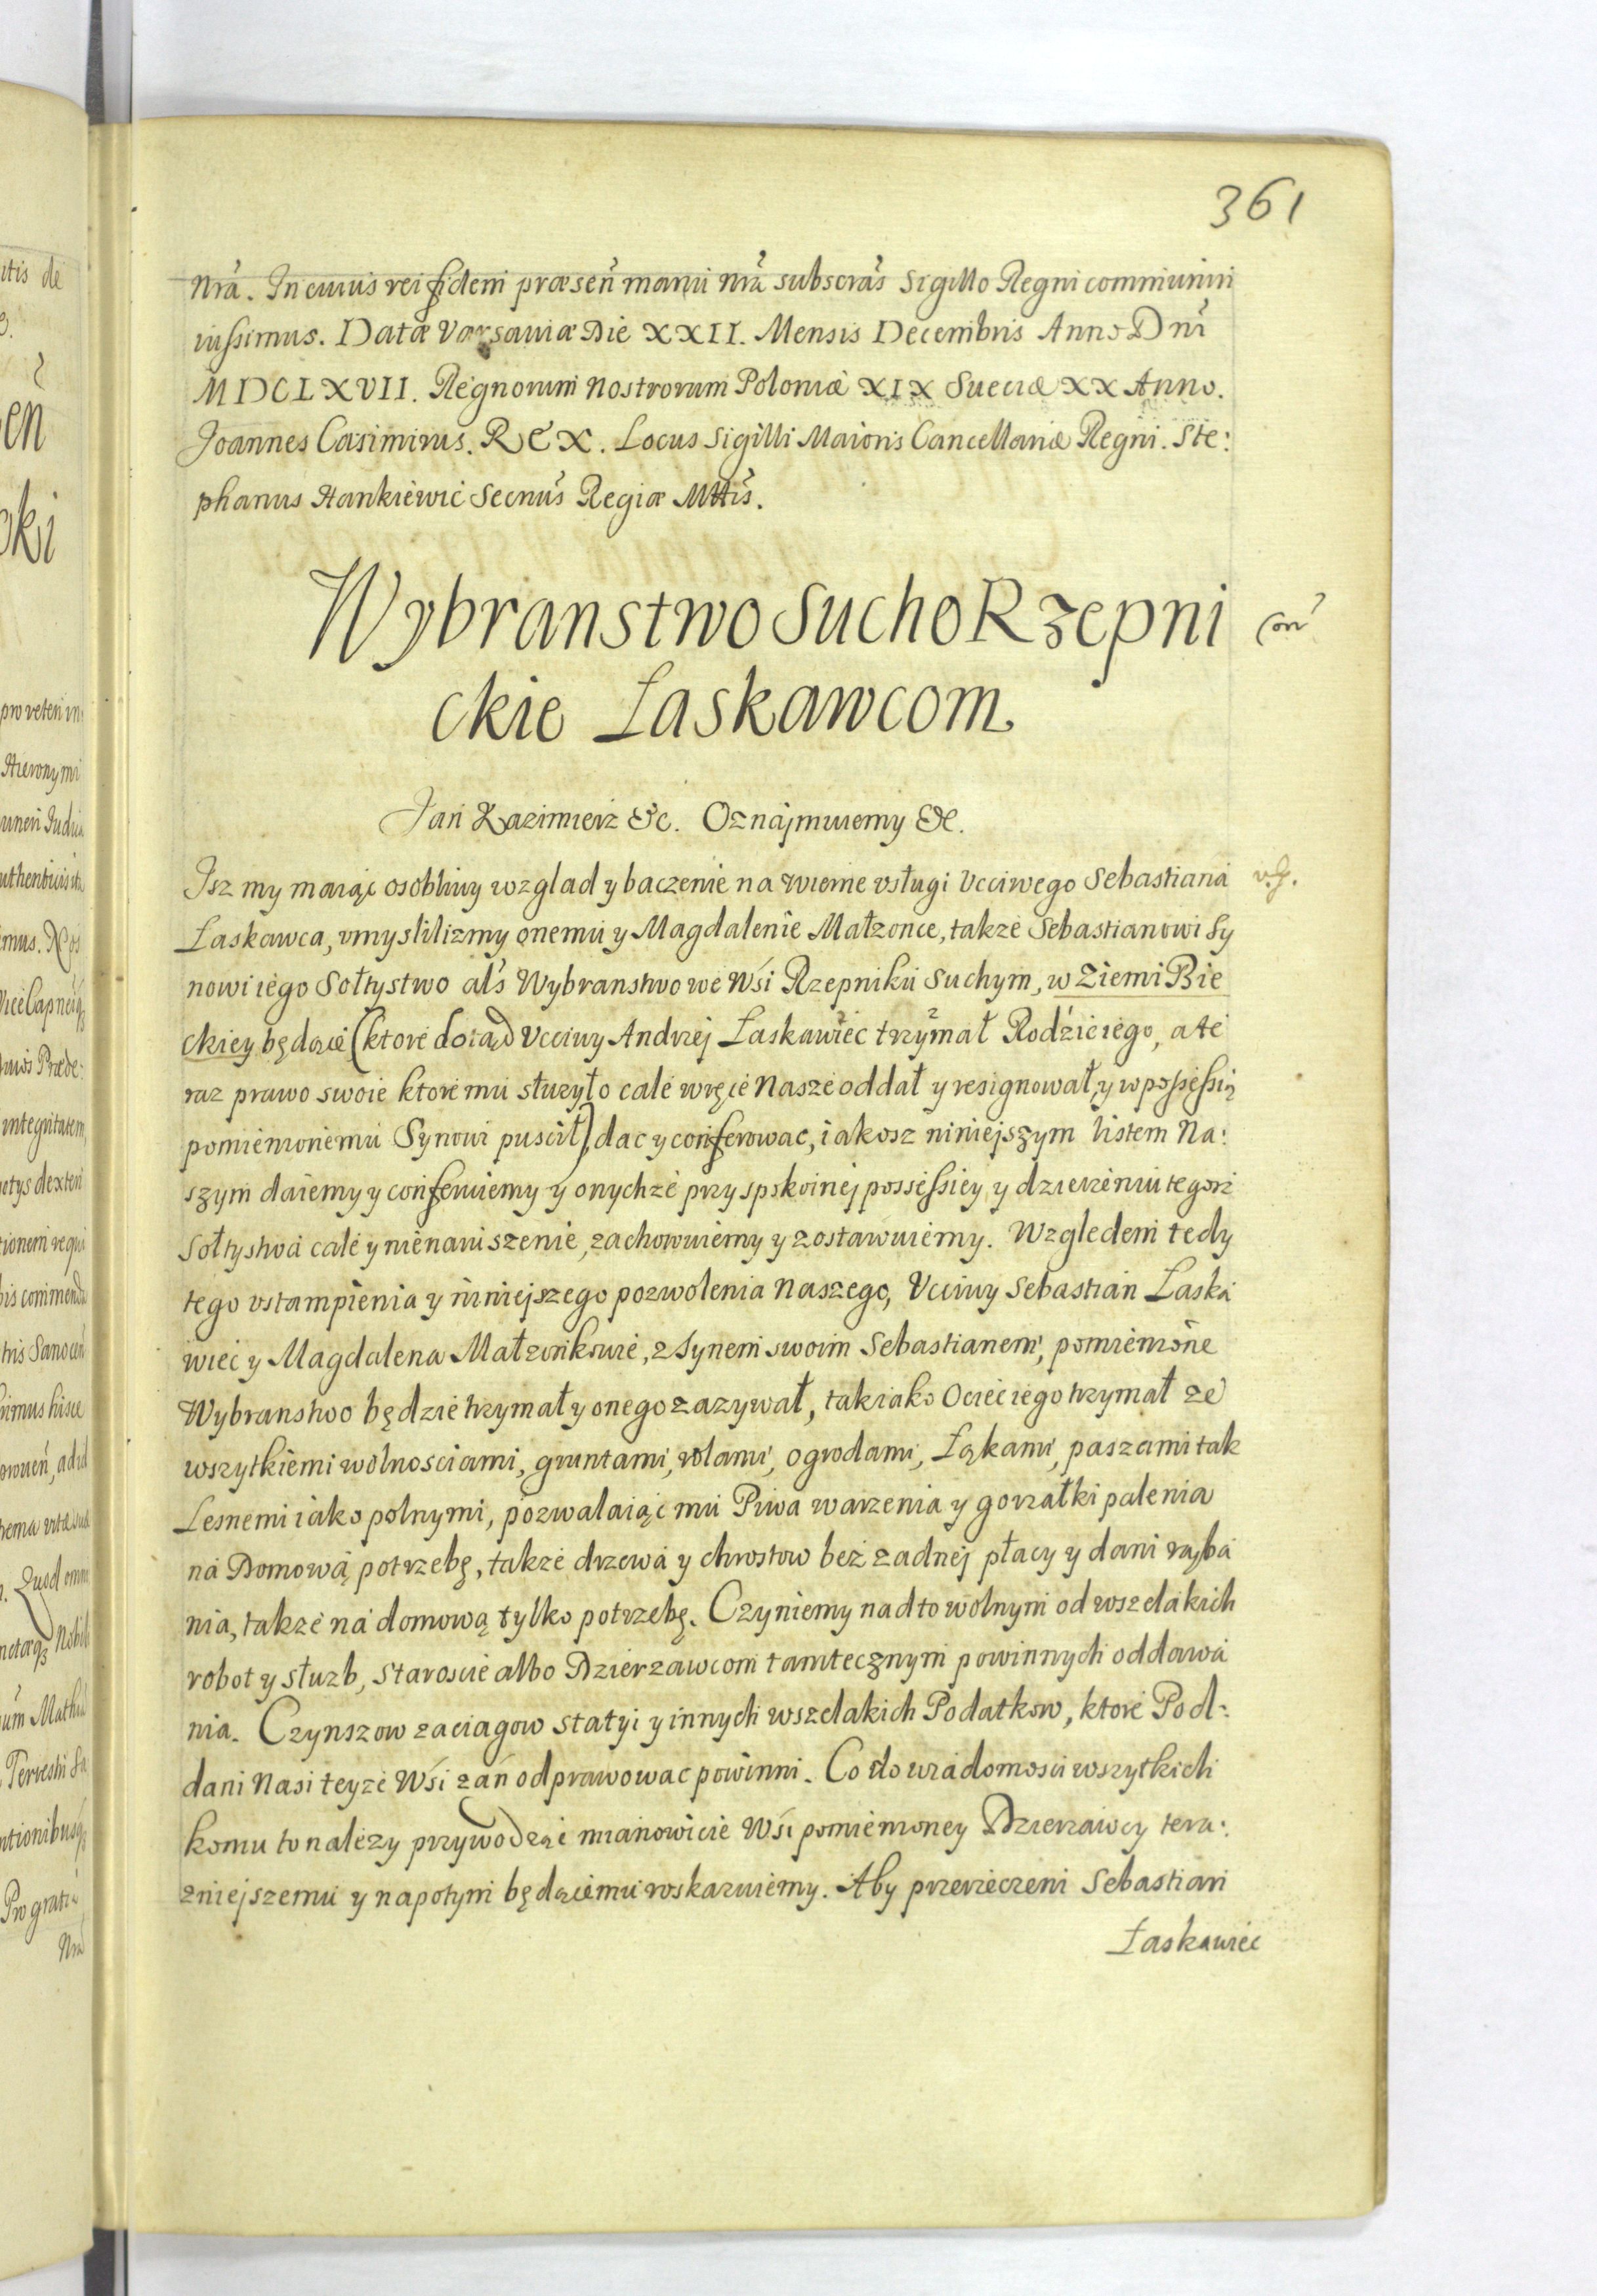 361
Nrã. In cuius rei fidem præseñ manu nrã subscrãs Sigillo Regni communiri
iussimus. Datæ Varsaviæ Die XXII. Mensis Decembris Anno Dnĩ
MDCLXVII. Regnorum Nostrorum Poloniæ XIX Sueciæ XX Anno.
Joannes Casimirus. REX. Locus Sigilli Maioris Cancellariæ Regni. Ste:
phanus Hankiewic Secriũs Regiæ Mttis̃.
Wybranstwo SuchoRzepni
ckie Łaskawcom.
Jan Kazimierz &c. Oznajmuiemy &c.
Isz my maiąc osobliwy wzglad y baczenie na wierne vsługi Vcciwego Sebastiana
Łaskawca, vmyslilizmy onemu y Magdalenie Małzonce, takze Sebastianowi Sy
nowi iego Sołtystwo als̃ Wybranstwo we Wśi Rzepniku Suchym, w Ziemi Bie
ckiey będące (ktore dotąd Vcciwy Andrzej Łaskawiec trzymał Rodzic iego, a te
raz prawo swoie ktore mu słuzyło cale w ręce Nasze oddał y resignował, y w possessią
pomienionemu Synowi puscił), dac y conferowac, iakosz niniejszym listem Na:
szym daiemy y conferuiemy y onychze przy spokoinej possessiey y dzierzeniu tegorz
Sołtystwa cale y nienaruszenie, zachowuiemy y zostawuiemy. Wzgledem tedy
tego vstampienia y niniejszego pozwolenia Naszego, Vcciwy Sebastian Łaska
wiec y Magdalena Małzonkowie, z Synem swoim Sebastianem, pomienione
Wybranstwo będzie trzymał y onego zazywał, tak iako Ociec iego trzymał ze
wszytkiemi wolnosciami, gruntami, rolami, ogrodami, Łąkami, paszami tak
Lesnemi iako polnymi, pozwalaiąc mu Piwa warzenia y gorzałki palenia
na Domową potrzebę, takze drzewa y chrostow bez zadnej płacy y dani rąba
nia, takze na domową tylko potrzebę. Czyniemy nadto wolnym od wszelakich
robot y słuzb, Staroscie albo Dzierzawcom tamtecznym powinnych oddawa
nia. Czynszow zaciagow statyi y innych wszelakich Podatkow, ktore Pod:
dani Nasi teyze Wśi zań odprawowac powinni. Co do wiadomosci wszytkich
komu to nalezy przywodząc mianowicie Wśi pomienioney Dzierzawcy tera:
zniejszemu y napotym będącemu roskazuiemy. Aby przerzeczeni Sebastian
Łaskawiec